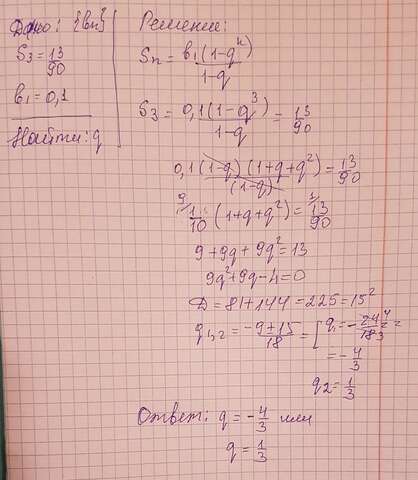 Дано: {bn}
S3 = 13/90
b1 = 0,1
Найти: q
Решение:
Sn = b1(1-q^n)/1-q
S3 = 0,1(1-q^3)/1-q = 13/90
0,1(1-q)(1+q+q^2)/(1-q) = 13/90
9/ 1/10 (1+q+q^2) = 1/ 13/90
9+9q+9q^2=13
9q^2+9q-4=0
D = 81+144=225=15^2
q1,2 = -9±15/18 = [ q1 = -24 4/18 3 =
= -4/3
q2 = 1/3
Ответ: q = -4/3 или
q = 1/3